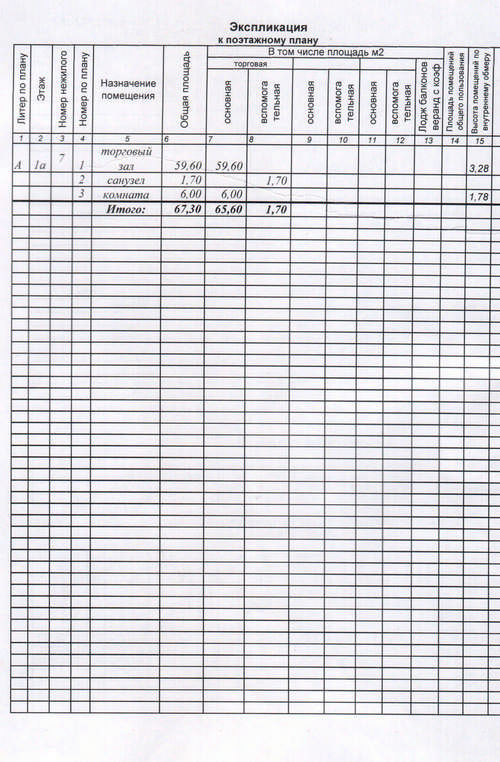 Экспликация
к поэтажному плану
Литер по плану
Этаж
Номер нежилого
Номер по плану
Назначение
помещения
Общая площадь
В том числе площадь м2
торговая
основная
вспомога
тельная
основная
вспомога
тельная
основная
вспомога
тельная
Лодж балконов
веранд с коэф
Площадь помещений
общего пользования
Высота помещений по
внутреннему обмеру
1 2 3 4 5 6 7 8 9 10 11 12 13 14 15
торговый
А 1а 7 1 зал 59,60 59,60 3,28
2 санузел 1,70 1,70
3 комната 6,00 6,00 1,78
Итого: 67,30 65,60 1,70